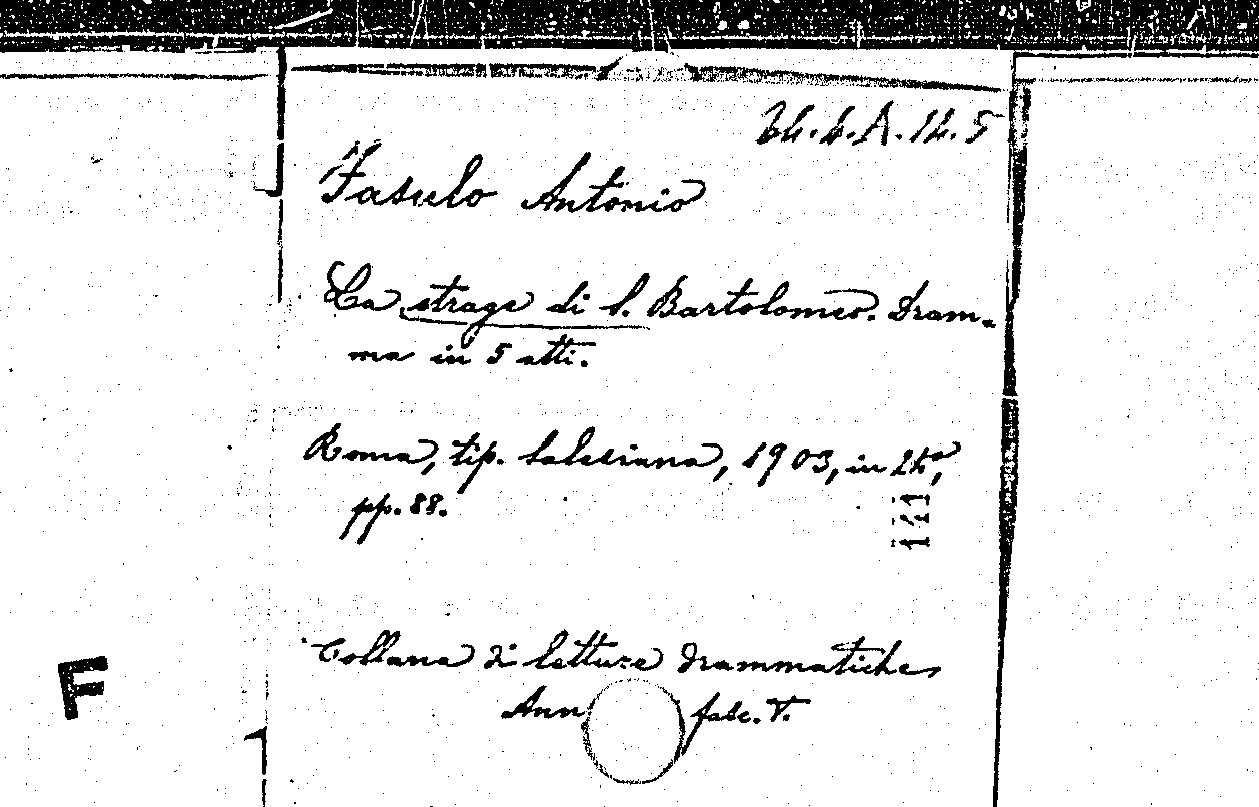 24.6.A.14.5
Fasulo Antonio
La strage di S. Bartolomeo. Dram-
ma in 5 atti.
Roma, tip. Salesiana, 1903, in 24°,
pp. 88.
111
Collana di letture drammatiche
Ann fasc. V.
F